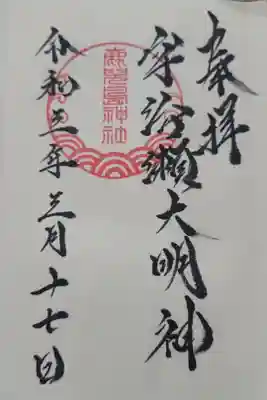 奉拝
宇治瀬大明神
鹿児島神社
令和三年三月十七日